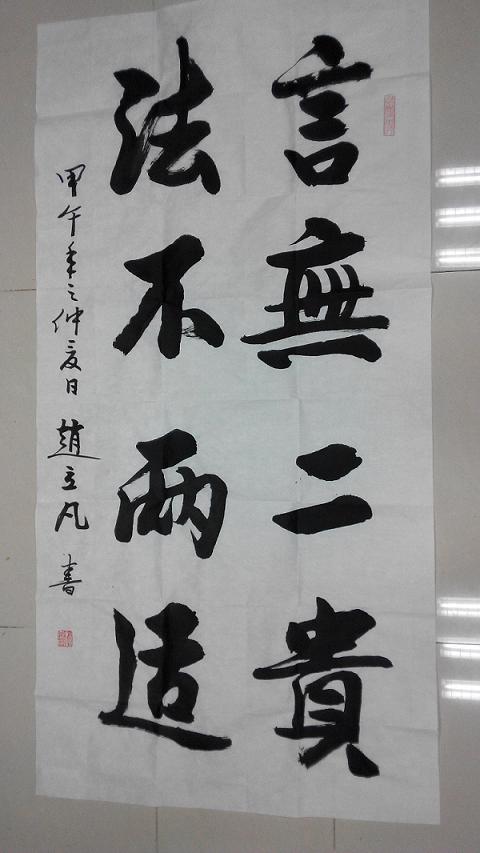 言無二貴
法不兩适
甲午年之仲夏日 趙立凡 書